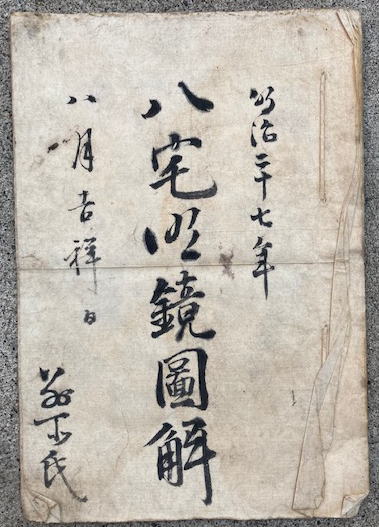 明治二十七年
八宅明鏡圖解
八月吉祥日
氏